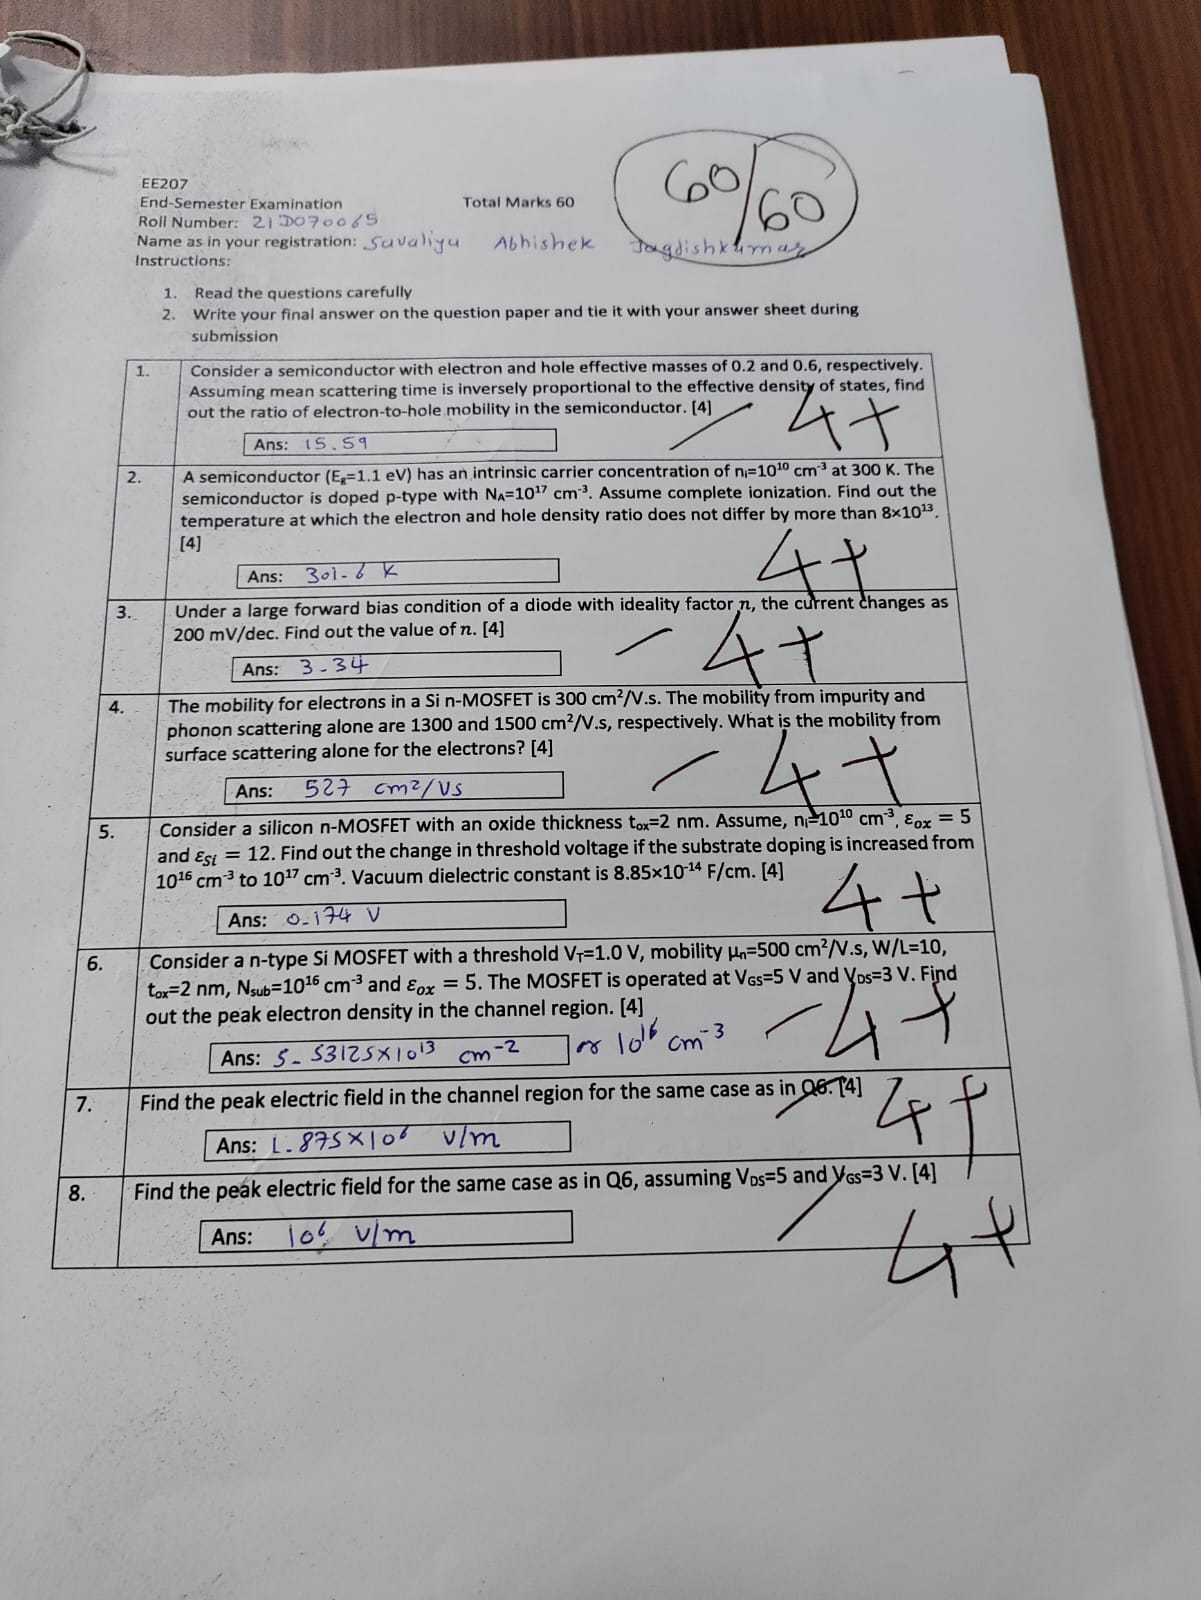 60/60
EE207
End-Semester Examination Total Marks 60
Roll Number: 21D070065
Name as in your registration: Savaliya Abhishek Jagdishkumar
Instructions:
1. Read the questions carefully
2. Write your final answer on the question paper and tie it with your answer sheet during
submission
1. Consider a semiconductor with electron and hole effective masses of 0.2 and 0.6, respectively.
Assuming mean scattering time is inversely proportional to the effective density of states, find
out the ratio of electron-to-hole mobility in the semiconductor. [4]
4+
Ans: 15.59
2. A semiconductor (Eg=1.1 eV) has an intrinsic carrier concentration of ni=10¹⁰ cm⁻³ at 300 K. The
semiconductor is doped p-type with NA=10¹⁷ cm⁻³. Assume complete ionization. Find out the
temperature at which the electron and hole density ratio does not differ by more than 8×10¹³.
[4]
4+
Ans: 301.6 K
3. Under a large forward bias condition of a diode with ideality factor n, the current changes as
200 mV/dec. Find out the value of n. [4]
4+
Ans: 3.34
4. The mobility for electrons in a Si n-MOSFET is 300 cm²/V.s. The mobility from impurity and
phonon scattering alone are 1300 and 1500 cm²/V.s, respectively. What is the mobility from
surface scattering alone for the electrons? [4]
4+
Ans: 527 cm²/Vs
5. Consider a silicon n-MOSFET with an oxide thickness tox=2 nm. Assume, ni=10¹⁰ cm⁻³, εox = 5
and εSi = 12. Find out the change in threshold voltage if the substrate doping is increased from
10¹⁶ cm⁻³ to 10¹⁷ cm⁻³. Vacuum dielectric constant is 8.85×10⁻¹⁴ F/cm. [4]
4+
Ans: 0.174 V
6. Consider a n-type Si MOSFET with a threshold VT=1.0 V, mobility μn=500 cm²/V.s, W/L=10,
tox=2 nm, Nsub=10¹⁶ cm⁻³ and εox = 5. The MOSFET is operated at VGS=5 V and VDS=3 V. Find
out the peak electron density in the channel region. [4]
4+
Ans: 5.53125×10¹³ cm⁻² or 10¹⁶ cm⁻³
7. Find the peak electric field in the channel region for the same case as in Q6. [4]
4+
Ans: 1.875×10⁶ V/m
8. Find the peak electric field for the same case as in Q6, assuming VDS=5 and VGS=3 V. [4]
4+
Ans: 10⁶ V/m